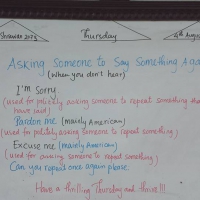 Shrawan 2073
Thursday
4th August
Asking Someone to Say Something Aga
(When you don't hear)
I'm Sorry
(used for politely asking someone to repeat something tha
have said)
Pardon me (mainly American)
(used for politely asking someone to repeat something)
Excuse me (mainly American)
(used for asking someone to repeat something)
Can you repeat once again please.
Have a thrilling Thursday and thrive!!!